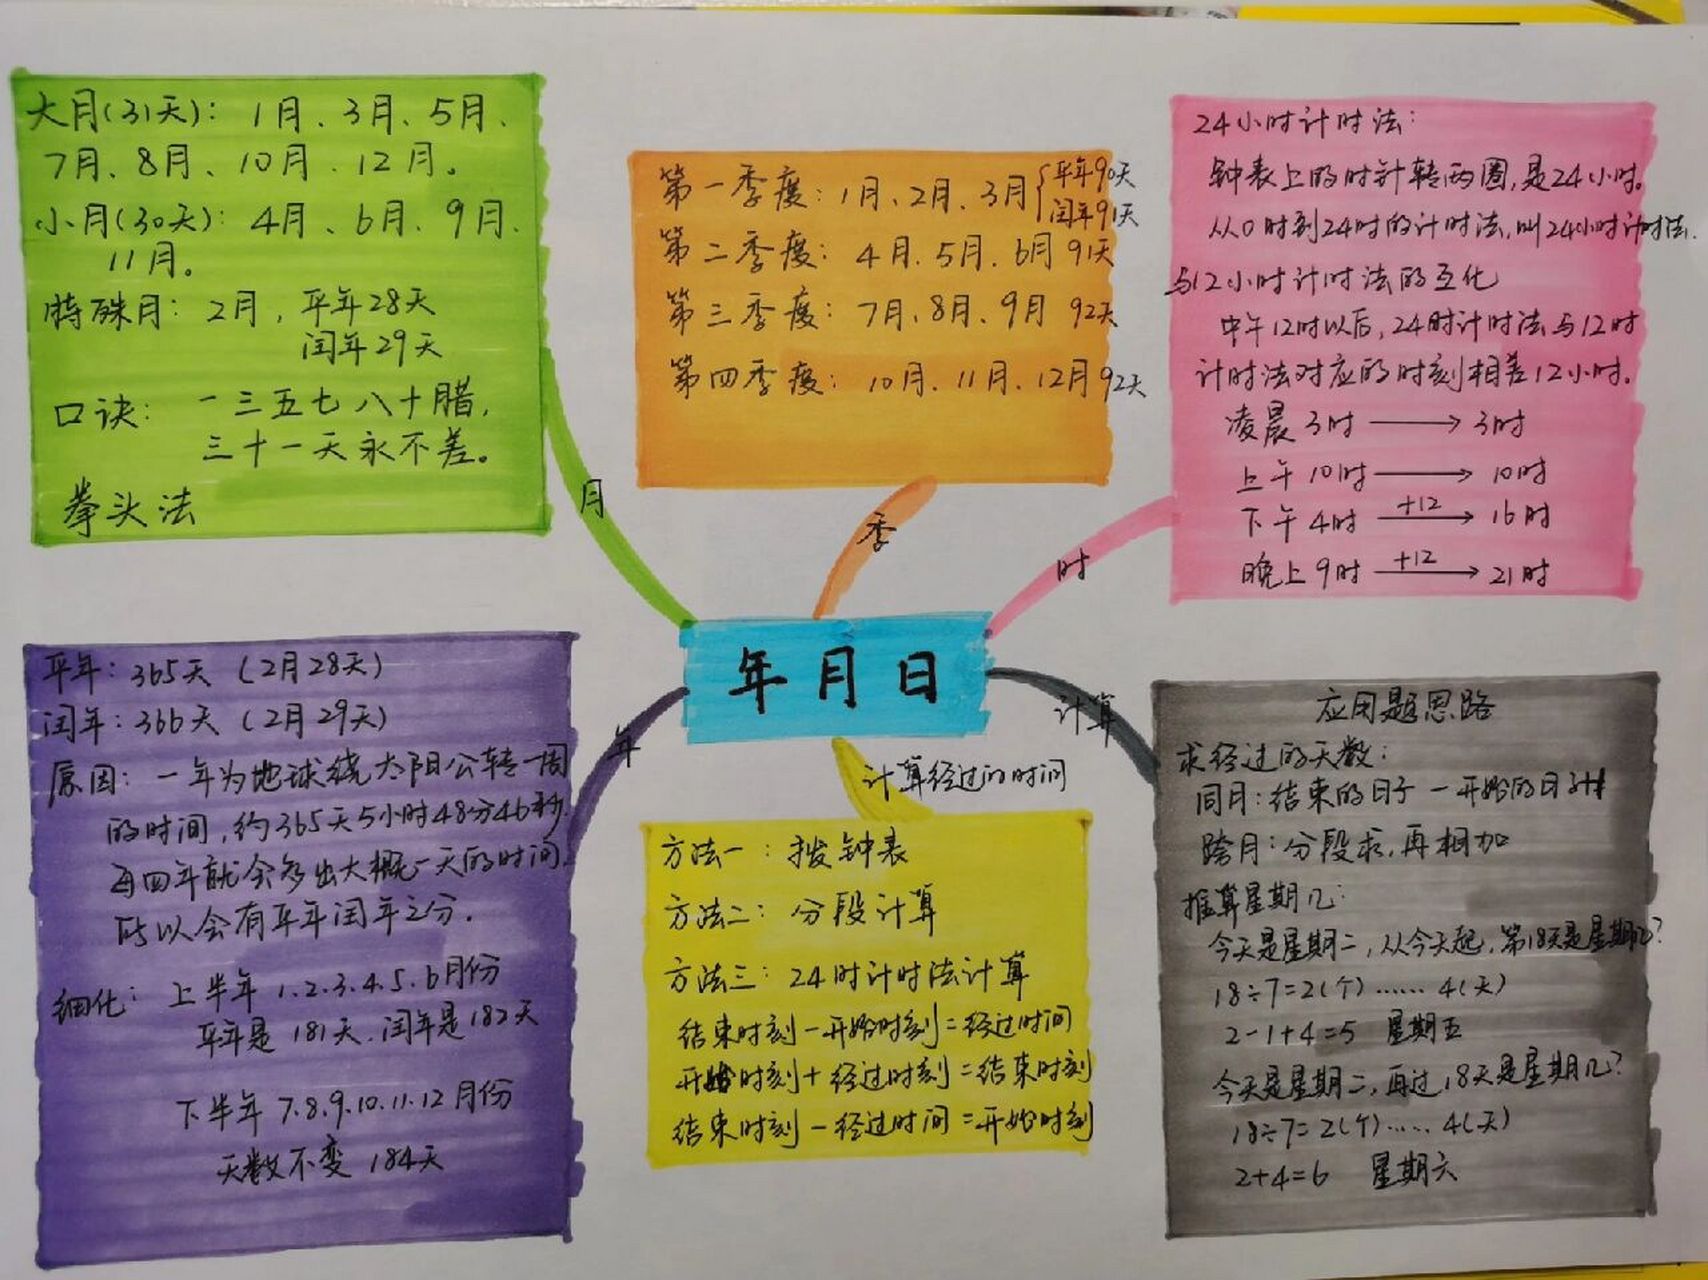 大月(31天): 1月、3月、5月、
7月、8月、10月、12月。
小月(30天): 4月、6月、9月、
11月。
特殊月: 2月, 平年28天
闰年29天
口诀: 一三五七八十腊,
三十一天永不差。
拳头法
月
第一季度: 1月、2月、3月
平年90天
闰年91天
第二季度: 4月、5月、6月 91天
第三季度: 7月、8月、9月 92天
第四季度: 10月、11月、12月92天
季
24小时计时法:
钟表上的时针转两圈,是24小时。
从0时到24时的计时法,叫24小时计时法.
与12小时计时法的互化
中午12时以后,24时计时法与12时
计时法对应的时刻相差12小时。
凌晨3时 → 3时
上午10时 → 10时
下午4时 +12→ 16时
晚上9时 +12→ 21时
时
年月日
平年: 365天 (2月28天)
闰年: 366天 (2月29天)
原因: 一年为地球绕太阳公转一周
的时间,约365天5小时48分46秒.
每四年就会多出大概一天的时间.
所以会有平年闰年之分.
细化: 上半年 1.2.3.4.5.6月份
平年是 181天.闰年是182天
下半年 7.8.9.10.11.12月份
天数不变 184天
年
计算经过的时间
方法一: 拨钟表
方法二: 分段计算
方法三: 24时计时法计算
结束时刻-开始时刻=经过时间
开始时刻+经过时刻=结束时刻
结束时刻-经过时间=开始时刻
计算
应用题思路
求经过的天数:
同月: 结束的日子-开始的日子+1
跨月: 分段求,再相加
推算星期几:
今天是星期二,从今天起,第18天是星期几?
18÷7=2(个)……4(天)
2-1+4=5 星期五
今天是星期二,再过18天是星期几?
18÷7=2(个)……4(天)
2+4=6 星期六